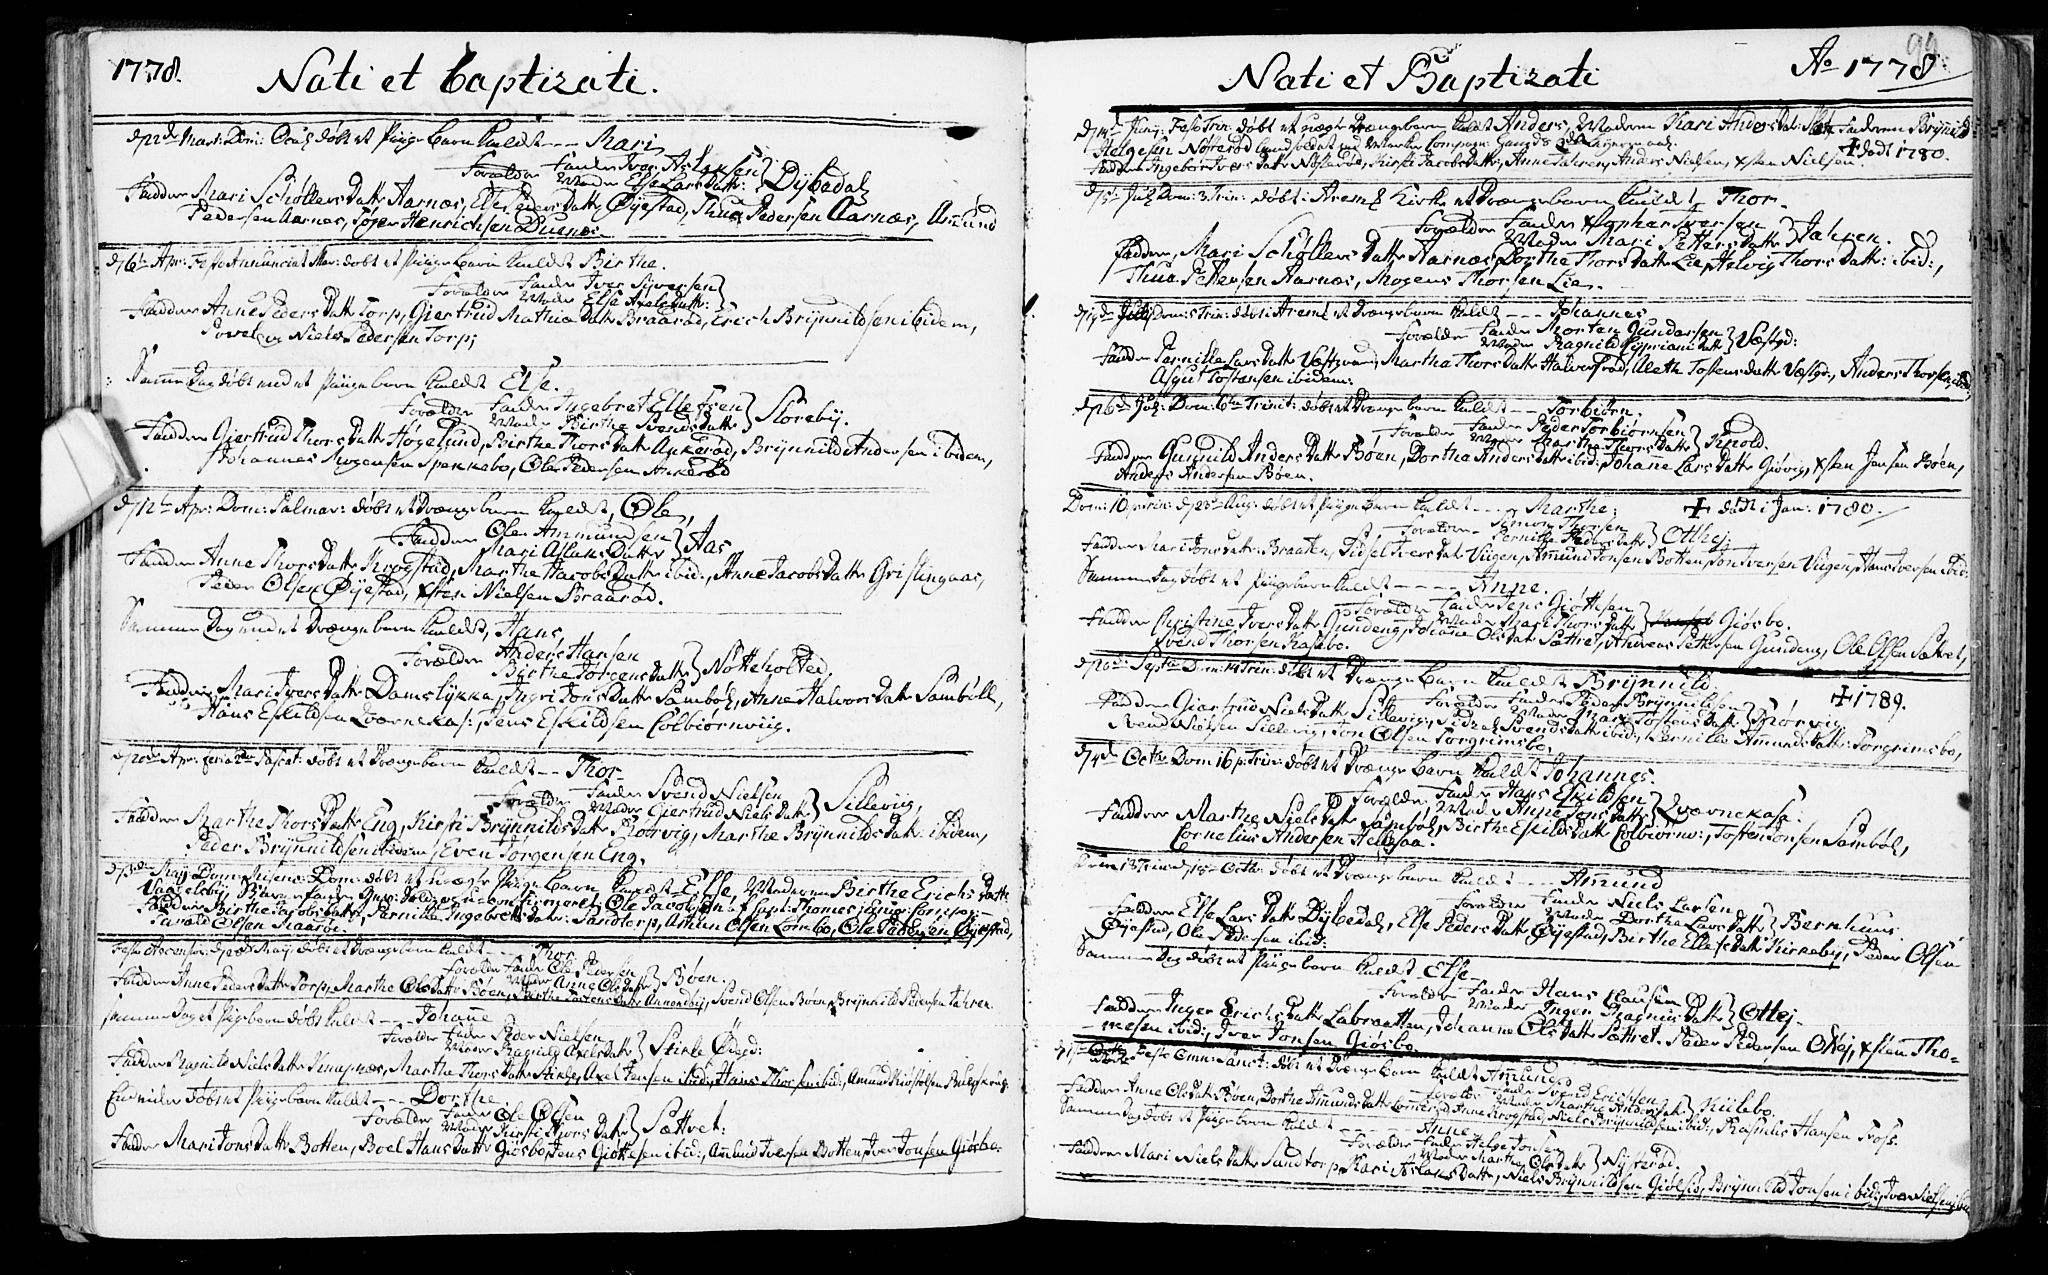 1778.
Nati et baptizati.
Dom: Oculi døbt et Piige barn kaldt --- Mari
Forældre Fader Iver Aslaksen
Moder Else Lars Datt: } Dybedal
Faddere Mari Schøllers Datt Aarnæs, Else Peders Datt Øÿestad, Thue Pedersen Aarnæs, Amund
Pedersen Aarnæs, Henrichsen
d 6te Apr: Festo Annunciat Mar: døbt et Piige barn kaldt Birthe.
Forældre Fader Iver Syversen
Moder Else Axels Datt: }
Faddere Anne Peders Datt Torp, Giertrud Mathia Datt Braarød, Erich Brÿnnildsen ibidem,
Povel og Niels Pedersen Torp;
Samme Dag døbt end et Piige barn kaldt Else.
Forældre Fader Ingebret Ellefsen
Moder Birthe Svends Datt } Storebÿ.
Faddere Giertrud Thors Datt Høgelund, Birthe Thors Datt Ankerød, Brÿnnild Andersen ibidem,
Johannes Mogensen Spekkebo, Ole Pedersen Ankerød
d 12te Apr: Dom: Palmar: døbt et Drænge barn kaldt, Ole,
Fader Ole Ammundsen
Mari Aslaks Datter } Aas
Faddere Anne Thors Datt Krogstad, Marthe Jacobs Datt ibid:, Anne Jacobs Datt Grislingaas,
Peder Olsen Øÿestad, Xsten Nielsen Braarød.
Samme Dag end et Drænge barn kaldt, Hans
Forældre Anders Hansen
Birthe Jørgens Datt } Nøtteholted,
Faddere, Mari Ivers Datt Damslÿkka, Ingri Jons Datt Sambøl, Anne Halvors Datt Sambøll,
Hans Eskildsen Qværnekas:, Jens Eskildsen Colbiørnviig.
d 20de Apr: feria 2da Pascat: døbt et Drænge barn kaldt -- Thor
Forældre Fader Svend Nielsen
Moder Giertrud Niels Datt } Sillevig,
Faddere Marthe Thors Datt Eng, Kirsti Brÿnnilds Datt Rørvig, Marthe Brÿnnilds Datt: ibidem,
Peder Brÿnnildsen ibidem, Even Jørgensen Eng.
Maÿ Dom: Miseric: Dom: døbt et uægte Piige barn kaldt Else, Moderen Birthe Erichs Datt
Ole Jacobsen
Faddere Birthe Jacobs Datt, Pernille Ingebrets Datt: Sandtorp, Amun Olsen Lombo, Ole Pedersen Øÿestad,
Olsen
Festo Ascensio: Maÿ døbt et Drænge barn kaldt --- Thor
Forældre Fader Ole Pedersen
Moder Anne Ols Datt } Bøen.
Faddere Anne Peders Datt Torp, Marthe Ols Datt Bøen, Datt, Svend Olsen Bøen, Brÿnnild Pedersen Jahren.
samme Dag et Piige barn døbt kaldt --- Johane
Forældre Fader Peder Nielsen
Moder Ragnild Axels Datt } Øde:
Faddere Ragnild Niels Datt Knapnæs, Marthe Thors Datt, Axel Jensen ibid:, Hans Thorsen ibid:, Amund
Endvidere døbt et Piige barn kaldt --- Dorthe
Forældre Fader Ole Olsen
Moder Kirsti Thors Datt } Sættret:
Faddere Mari Jons Datt Botten, Boel Hans Datt Giøsbo, Jens Giøttesen ibid:, Amund Iversen Botten, Iver Jonsen Giøsbo.
99.
Nati et Baptizati
Ao 1778
Junÿ: Festo Trin: døbt et uægte Drænge barn kaldt Anders, Moderen Kari Anders Dat: Faderen Brÿnnild
Helgesen Nøterød
✝ død 1780.
Faddere Ingebor Ivers Datt, Kirsti Jacobs Datt, Anne Jahren, Anders Nielsen, Xsten Nielsen
d 5te Julÿ Dom: 3 Trin: døbt i Aremk Kirke et Drænge barn kaldt Thor.
Forældre Fader Xstopher Iversen
Moder Mari Petters Datt } Jahren.
Faddere, Mari Schøllers Datt Aarnæs, Dorthe Thors Datt Lie, Helvig Thors Datt: ibid:,
Thue Pettersen Aarnæs, Mogens Thorsen Lie.
Julÿ Dom: Trin: døbt i Aremk et Drænge barn kaldt --- Johannes
Forældre Fader Morten Gundersen
Moder Ragnild Cypriani Datt } Væstgd:
Faddere Pernille Lars Datt, Marthe Thors Datt Halvorsrød, Aleth Tostens datt Væstgd:, Anders Thorsen
Asgut Tostensen ibidem:
d 26de Julÿ: Dom: 6te Trinit: døbt et Drænge barn kaldt --- Torbiørn.
Forældre Fader Peder Torbiørnsen
Moder Marthe Thors Datt } Kiold.
Faddere Gunnild Anders Datt Bøen, Dorthe Anders Datt ibid: Johane Lars Datt Giøvig, Xsten Jensen Bøen,
Anders Andersen Bøen.
Dom: 10 p Trin: d 23de Aug: døbt et Piige barn kaldt --- Marthe; ✝ død i Jan: 1780.
Forældre Simon Thorsen
Pernille Peders Datt } Otthej:
Faddere Mari Jons datt: Braaten, Sidsel Ivers Dat: Viigen, Amund Jonsen Botten, Jon Iversen Viigen, Hans Iversen ibid:
Samme Dag døbt et Piige barn kaldt ---- Anne.
Forældre Fader Jens Giøttesen
Moder Mari Thors Datt } Giøsbo.
Faddere Christine Ivers Datt Gundeng, Johane Ols Dat: Sættret, Andreas Pettersen Gundeng, Ole Olsen Sættret,
Svend Thorsen Kasebo.
d 20de Septr Dom: 14 Trin: døbt et Drænge barn kaldt Brÿnnild ✝ 1789.
Forældre Fader Peder Brÿnnildsen
Moder Mari Tostens Datt } Rørvig
Faddere Giertrud Niels Datt Sillevig, Sidzel Svends Datt ibid:, Pernille Amunds Datt: Torgrimsbo,
Svend Nielsen Sillevig, Jon Olsen Torgrimsbo.
d 4de Octbr Dom 16 p: Trin: døbt et Drænge barn kaldt Johannes.
Forældre Fader Hans Eskildsen
Moder Anne Jens Datt } Qværnekas:
Faddere Marthe Niels Datt Sambøl, Birthe Eskilds Datt Colbiørnv:, Tosten Jonsen Sambøl,
Cornelius Andersen
Octbr: døbt et Drænge barn kaldt --- Amund
Forældre Fader Niels Larsen
Moder Dorthe Lars Datt } Bernhuus
Faddere Else Lars Datt Dÿbedal, Else Peders Datt Øÿestad, Birthe Ellefs Datt Kirkebÿ, Peder Olsen
Øÿestad, Ole Pedersen ibid:
Samme Dag døbt et Piige barn kaldt Else
Forældre Fader Hans Clausen
Moder Inger Magnus Datt } Otthej.
Faddere Inger Erichs Datt Labraatten, Johanne Ols Datt Sættret. Peder Pedersen Otthej, Xsten Tho-
mesen ibid:, Iver Jonsen Giøsbo.
Festo Omn: Sanct: døbt et Drænge barn kaldt Amund
Forældre Fader Svend Erichsen
Moder Marthe Anders Datt } Kiilebo.
Faddere Anne Ols Datt Bøen, Dorthe Amunds Datt, Anne Krogstad, Niels Brÿnnildsen ibid:, Rasmus Hansen Foss.
Samme Dag døbt et Piige barn kaldt ---- Anne
Forældre Fader Helge Jonsen
Moder Marthe Ols Datt } Nÿsterød.
Faddere Mari Niels Datt Sandtorp, Kari Aslaks Datt, Niels Brÿnnildsen Giølsiø, Brÿnnild Jonsen ibid:, Iver Nielsen